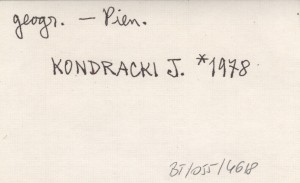 geogr. — Pien.
KONDRACKI J. *1978
BT/055/4618